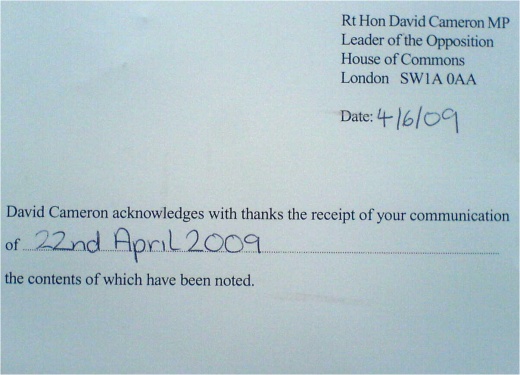 Rt Hon David Cameron MP
Leader of the Opposition
House of Commons
London SW1A 0AA
Date: 4/6/09
David Cameron acknowledges with thanks the receipt of your communication
of 22nd April 2009
the contents of which have been noted.